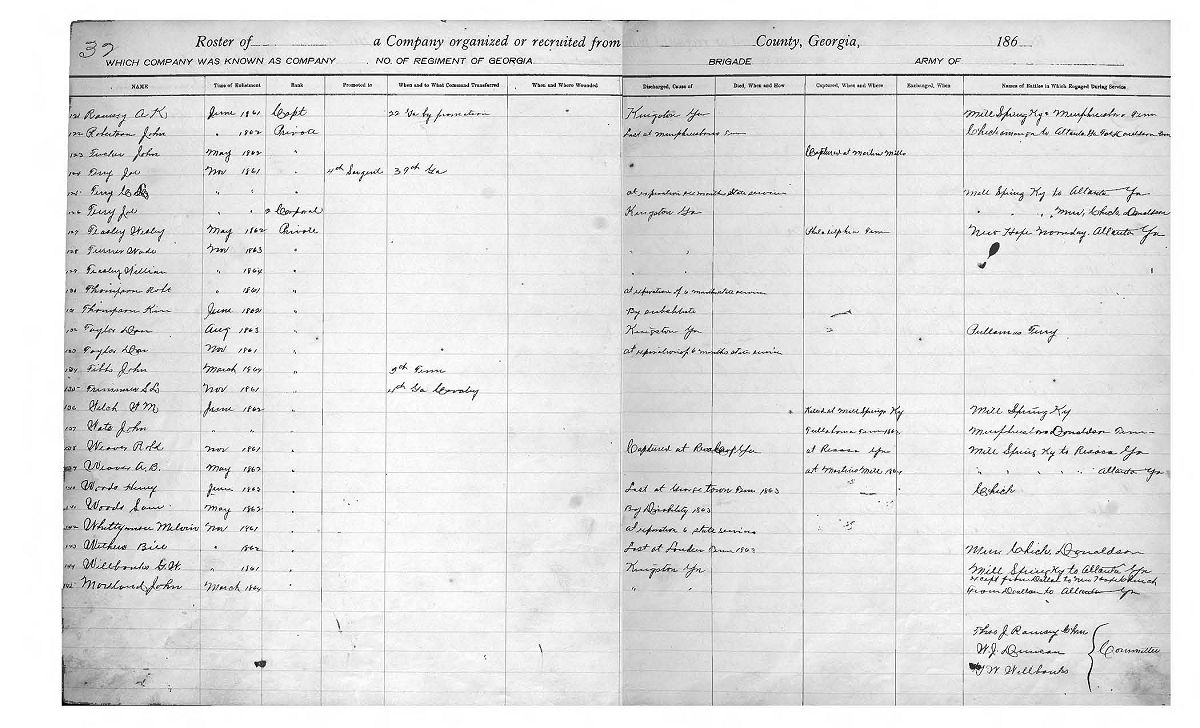 32
Roster of a Company organized or recruited from County, Georgia, 186
WHICH COMPANY WAS KNOWN AS COMPANY NO. OF REGIMENT OF GEORGIA BRIGADE ARMY OF
NAME Time of Enlistment Rank Promoted to When and to What Command Transferred When and Where Wounded Discharged, Cause of Died, When and How Captured, When and Where Exchanged, When Names of Battles in Which Engaged During Service
121 Ramsey A K June 1861 Capt 22 Ga by promotion Kingston Ga Mill Spring Ky & Murphresboro Tenn
122 Robertson John " 1862 Private Last at Murphresboro Tenn Chickamauga to Atlanta Ga
123 Tucker John May 1862 " Captured at Martin Mills
124 Joe Nov 1861 " 4th Sargent 39th Ga
125 Terry " " " at expiration six months State service Mill Spring Ky to Atlanta Ga
126 Terry Joe " " 2 Corporal Kingston Ga " " " Mur, Chick Donaldson
127 Teasley Wesley May 1862 Private Philadelphia Tenn New Hope Noonday Atlanta Ga
128 Turner Wade Nov 1863 " " "
129 Teasley William " 1864 " " "
130 Thompson Robt " 1861 " at expiration of 6 months state service
131 Thompson Kim June 1862 " By substitute
132 Taylor Dan Aug 1863 " Kingston Ga Terry
133 Taylor Nov 1861 " at expiration of 6 months state service
134 Tibbs John March 1864 " 9th Tenn
135 Trimmer S L Nov 1861 " 4th Ga Cavalry
136 Welch W M June 1862 " Killed at Mill Springs Ky Mill Spring Ky
137 John " " " Tullahoma Tenn 1863 Murphresboro Donaldson Tenn
138 Weaver Robt Nov 1861 " Captured at Ga at Resaca Ga Mill Spring Ky to Resaca Ga
139 Weaver A.B. May 1862 " at Martins Mill 1864 " " " " " Atlanta Ga
140 Woods Henry June 1863 " Last at George town Tenn 1863 Chick
141 Woods Sam May 1862 " By Disability 1863
142 Whittymore Melvin Nov 1861 " at expiration 6 state service
143 Withers Bill " 1862 " Last at Louden Tenn 1863 Mur Chick Donaldson
144 Willbanks G.W. " 1861 " Kingston Ga Mill Spring Ky to Atlanta Ga
except from Dallas to New Hope Church
145 Moreland John March 1864 " " " From Dallas to Atlanta Ga
Thos J. Ramsey Chm
W.J. Duncan Committee
G W. Willbanks